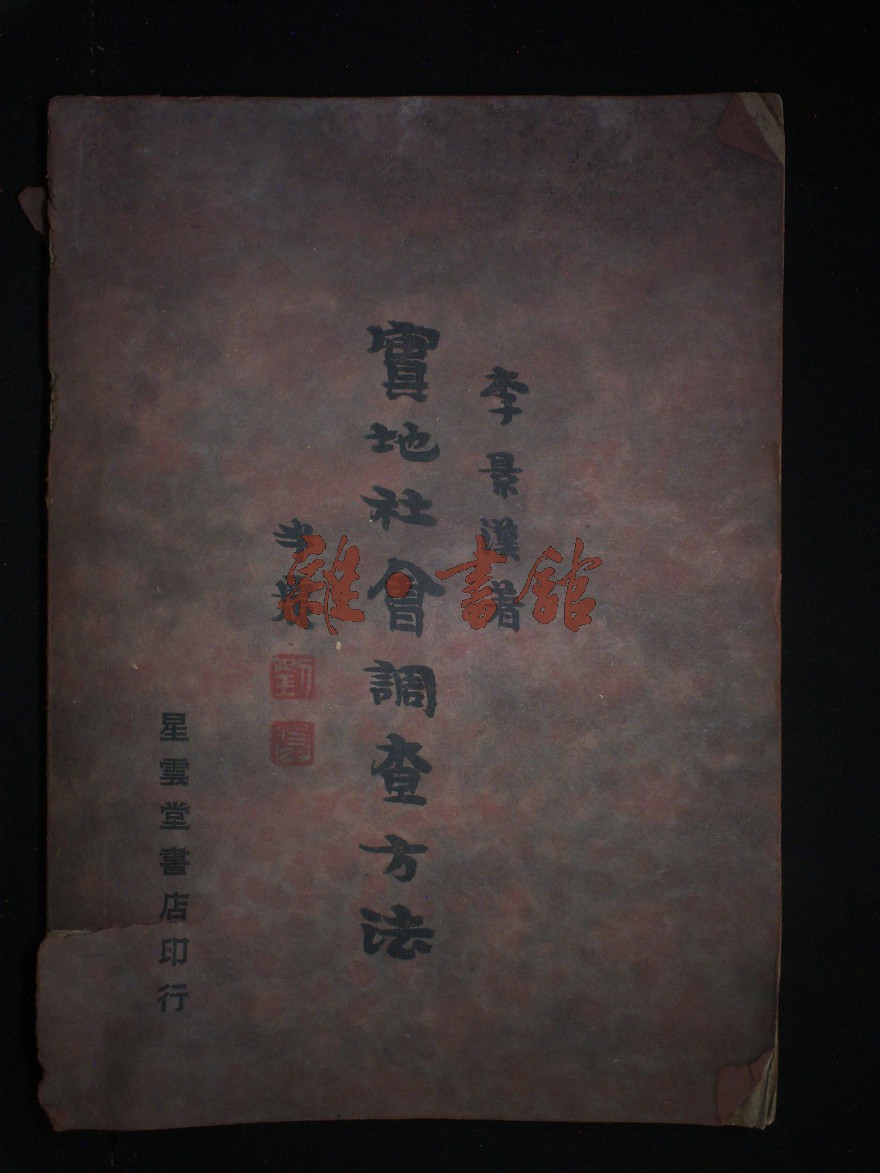 李景漢著
實地社會調查方法
半農
劉
復
星雲堂書店印行
雜·書館